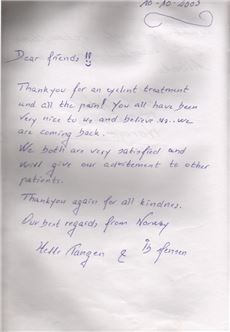 10-10-2003
Dear friends!!
Thankyou for an exclint treatment
and all the pain! You all have been
very nice to us and believe us.. we
are coming back.
We both are very satisfied and
will give our advetement to other
patients.
Thankyou again for all kindnes.
Our best regards from Norway
Helle Tangen &